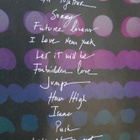 Sorry
Future Lovers
I Love New York
Let it will be
Forbidden love
Jump
How High
Isaac
Push